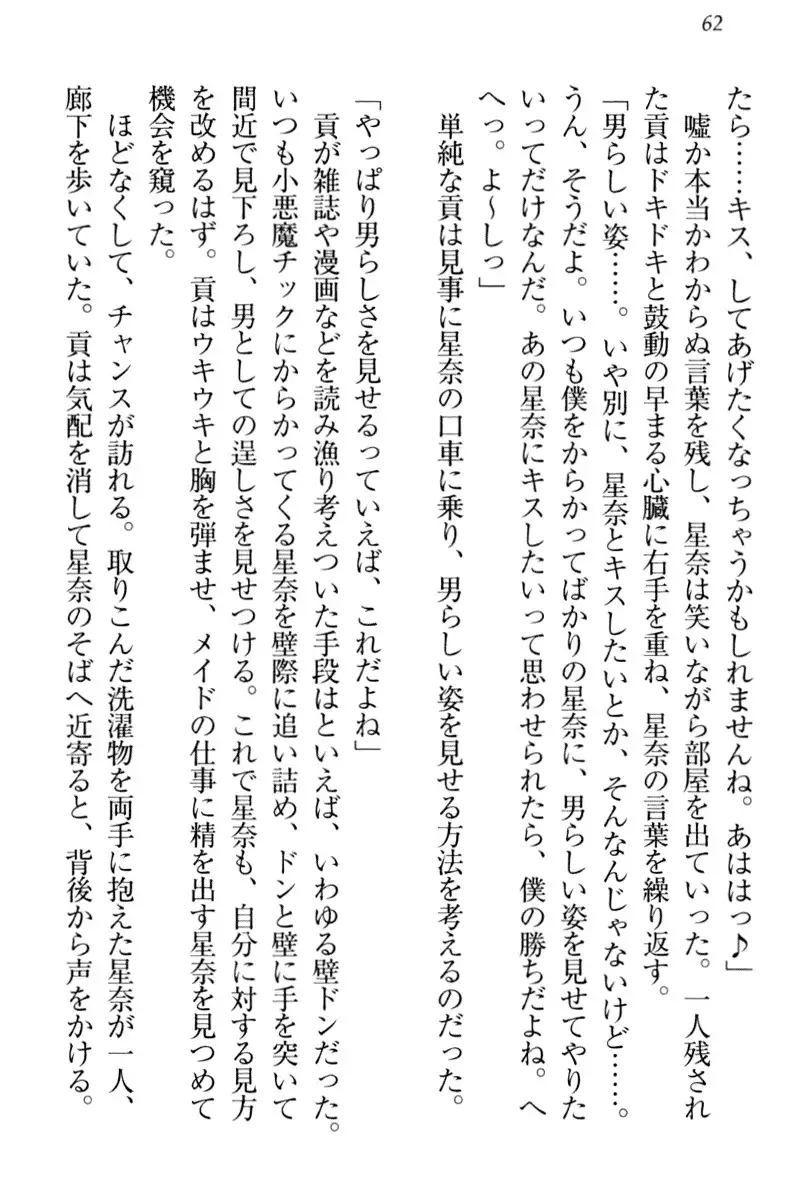 62
たら……キス、してあげたくなっちゃうかもしれませんね。あははっ♪」
嘘か本当かわからぬ言葉を残し、星奈は笑いながら部屋を出ていった。一人残され
た貢はドキドキと鼓動の早まる心臓に右手を重ね、星奈の言葉を繰り返す。
「男らしい姿……。いや別に、星奈とキスしたいとか、そんなんじゃないけど……。
うん、そうだよ。いつも僕をからかってばかりの星奈に、男らしい姿を見せてやりた
いってだけなんだ。あの星奈にキスしたいって思わせられたら、僕の勝ちだよね。へ
へっ。よ～しっ」
単純な貢は見事に星奈の口車に乗り、男らしい姿を見せる方法を考えるのだった。
「やっぱり男らしさを見せるっていえば、これだよね」
貢が雑誌や漫画などを読み漁り考えついた手段はといえば、いわゆる壁ドンだった。
いつも小悪魔チックにからかってくる星奈を壁際に追い詰め、ドンと壁に手を突いて
間近で見下ろし、男としての逞しさを見せつける。これで星奈も、自分に対する見方
を改めるはず。貢はウキウキと胸を弾ませ、メイドの仕事に精を出す星奈を見つめて
機会を窺った。
ほどなくして、チャンスが訪れる。取りこんだ洗濯物を両手に抱えた星奈が一人、
廊下を歩いていた。貢は気配を消して星奈のそばへ近寄ると、背後から声をかける。